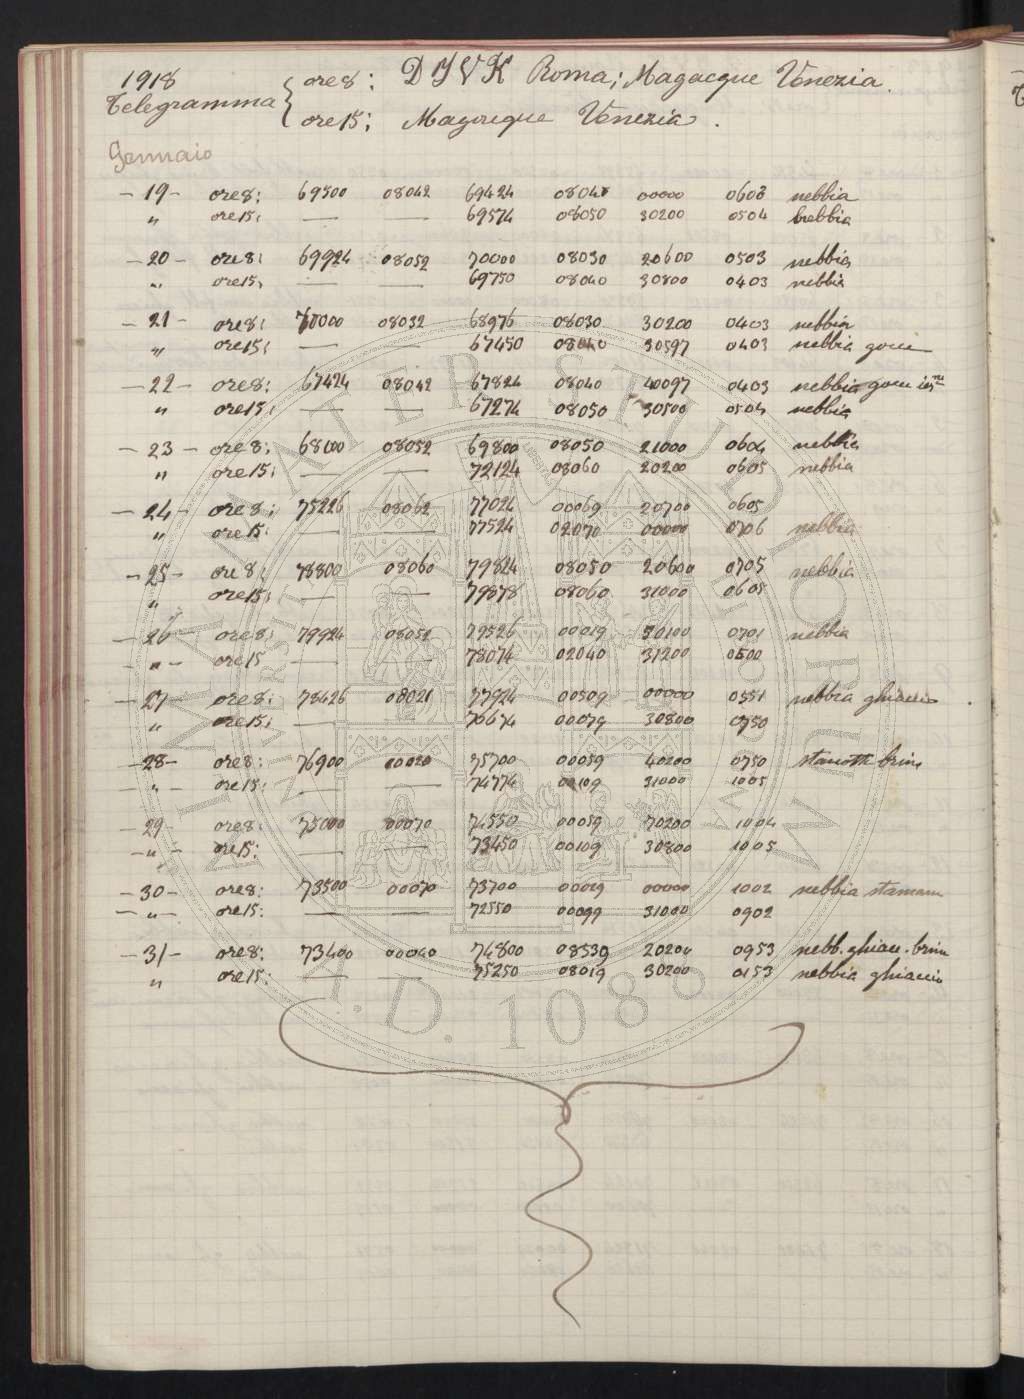 1918 ore 8: DIVK Roma; Magacque Venezia.
Telegramma ore 15: Magacque Venezia.
Gennaio
- 19 - ore 8: 69500 08042 69424 0804 00000 0603 nebbia
" ore 15: — — 69574 08050 30200 0504 nebbia
- 20 - ore 8: 69924 08052 70000 08030 20600 0503 nebbia
" ore 15, — — 69750 08040 30800 0403 nebbia
- 21 - ore 8: 70000 08032 68976 08030 30200 0403 nebbia
" ore 15: — — 67450 08040 30597 0403 nebbia
- 22 - ore 8: 67424 08042 67824 08040 40097 0403 nebbia
" ore 15: — — 67274 08050 30500 0504 nebbia
- 23 - ore 8: 68100 08052 69800 08050 21000 0604 nebbia
" ore 15: — — 72124 08060 20200 0605 nebbia
- 24 - ore 8: 75226 08062 77024 00069 20700 0605
" ore 15: — — 77524 02070 00000 0706 nebbia
- 25 - ore 8: 78800 08060 79824 08050 20600 0705 nebbia
" ore 15: — — 79878 08060 31000 0605
- 26 - ore 8: 79924 08052 79526 00019 50100 0701 nebbia
- " - ore 15 — — 78074 02040 31200 0500
- 27 - ore 8: 78426 08021 77924 00509 00000 0551 nebbia ghiaccio
" ore 15: — — 76674 00079 30800 0750
- 28 - ore 8: 76900 00020 75700 00059 40200 0750 stanotte brina
- " - ore 15: — — 74774 00109 31000 1005
- 29 - ore 8: 75000 00070 74550 00059 70200 1004
- " - ore 15: — — 73450 00109 30800 1005
- 30 - ore 8: 73500 00070 73700 00019 00000 1002 nebbia stamane
- " - ore 15: — — 72550 00099 31000 0902
- 31 - ore 8: 73400 00040 74800 08539 20200 0953 nebb. ghiac. brina
" ore 15: — — 75250 08019 30200 0153 nebbia ghiaccio
ALMA MATER STUDIORUM
A.D. 1088